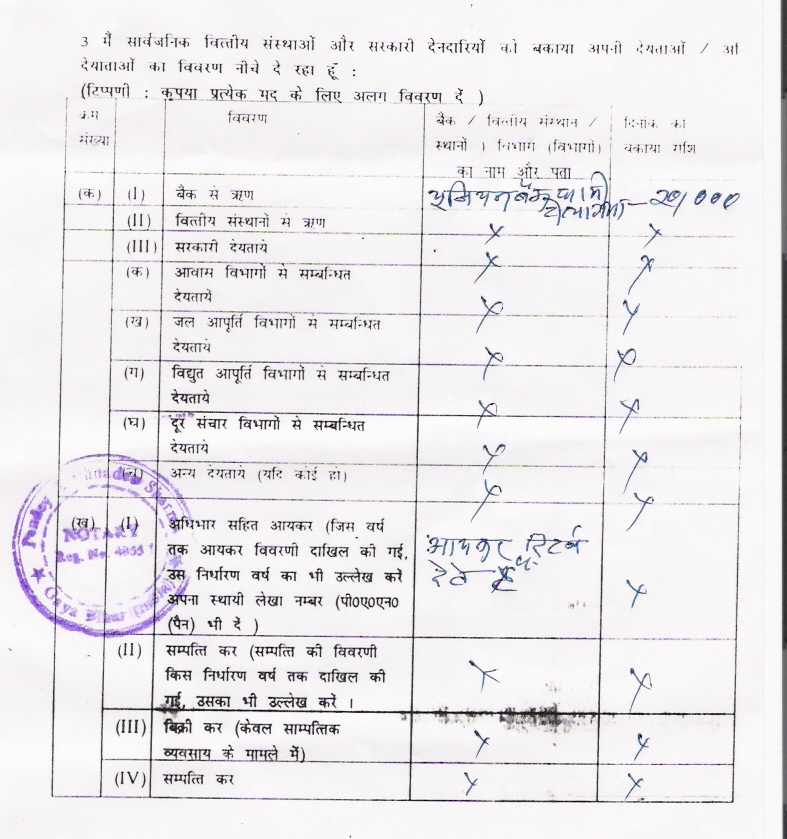 3 मैं सार्वजनिक वित्तीय संस्थाओं और सरकारी देनदारियों को बकाया अपनी देयताओं / अ
देयाताओं का विवरण नीचे दे रहा हूँ :
(टिप्पणी : कृपया प्रत्येक मद के लिए अलग विवरण दें )
क्रम
संख्या
विवरण
बैंक / वित्तीय संस्थान /
स्थानों ) विभाग (विभागों)
का नाम और पता
दिनांक को
बकाया राशि
(क) (I) बैंक से ऋण
यूनियन बैंक
(II) वित्तीय संस्थानो से ऋण X X
(III) सरकारी देयताये X X
(क) आवाम विभागों से सम्बन्धित
देयतायें X X
(ख) जल आपूर्ति विभागों से सम्बन्धित
देयताये X X
(ग) विद्युत आपूर्ति विभागों से सम्बन्धित
देयताये X X
(घ) दूर संचार विभागों से सम्बन्धित
देयताये X X
(च) अन्य देयताये (यदि कोई हो) X X
(ख) (I) अधिभार सहित आयकर (जिस वर्ष
तक आयकर विवरणी दाखिल की गई,
उस निर्धारण वर्ष का भी उल्लेख करें
अपना स्थायी लेखा नम्बर (पी०ए०एन०
(पैन) भी दें )
आयकर रिटर्न
देते हैं X
(II) सम्पत्ति कर (सम्पत्ति की विवरणी
किस निर्धारण वर्ष तक दाखिल की
गई, उसका भी उल्लेख करें । X X
(III) बिक्री कर (केवल साम्पत्तिक
व्यवसाय के मामले में) X X
(IV) सम्पत्ति कर X X
Pandey Sharma
NOTARY
Reg. No. 4055
Gaya Bihar (India)